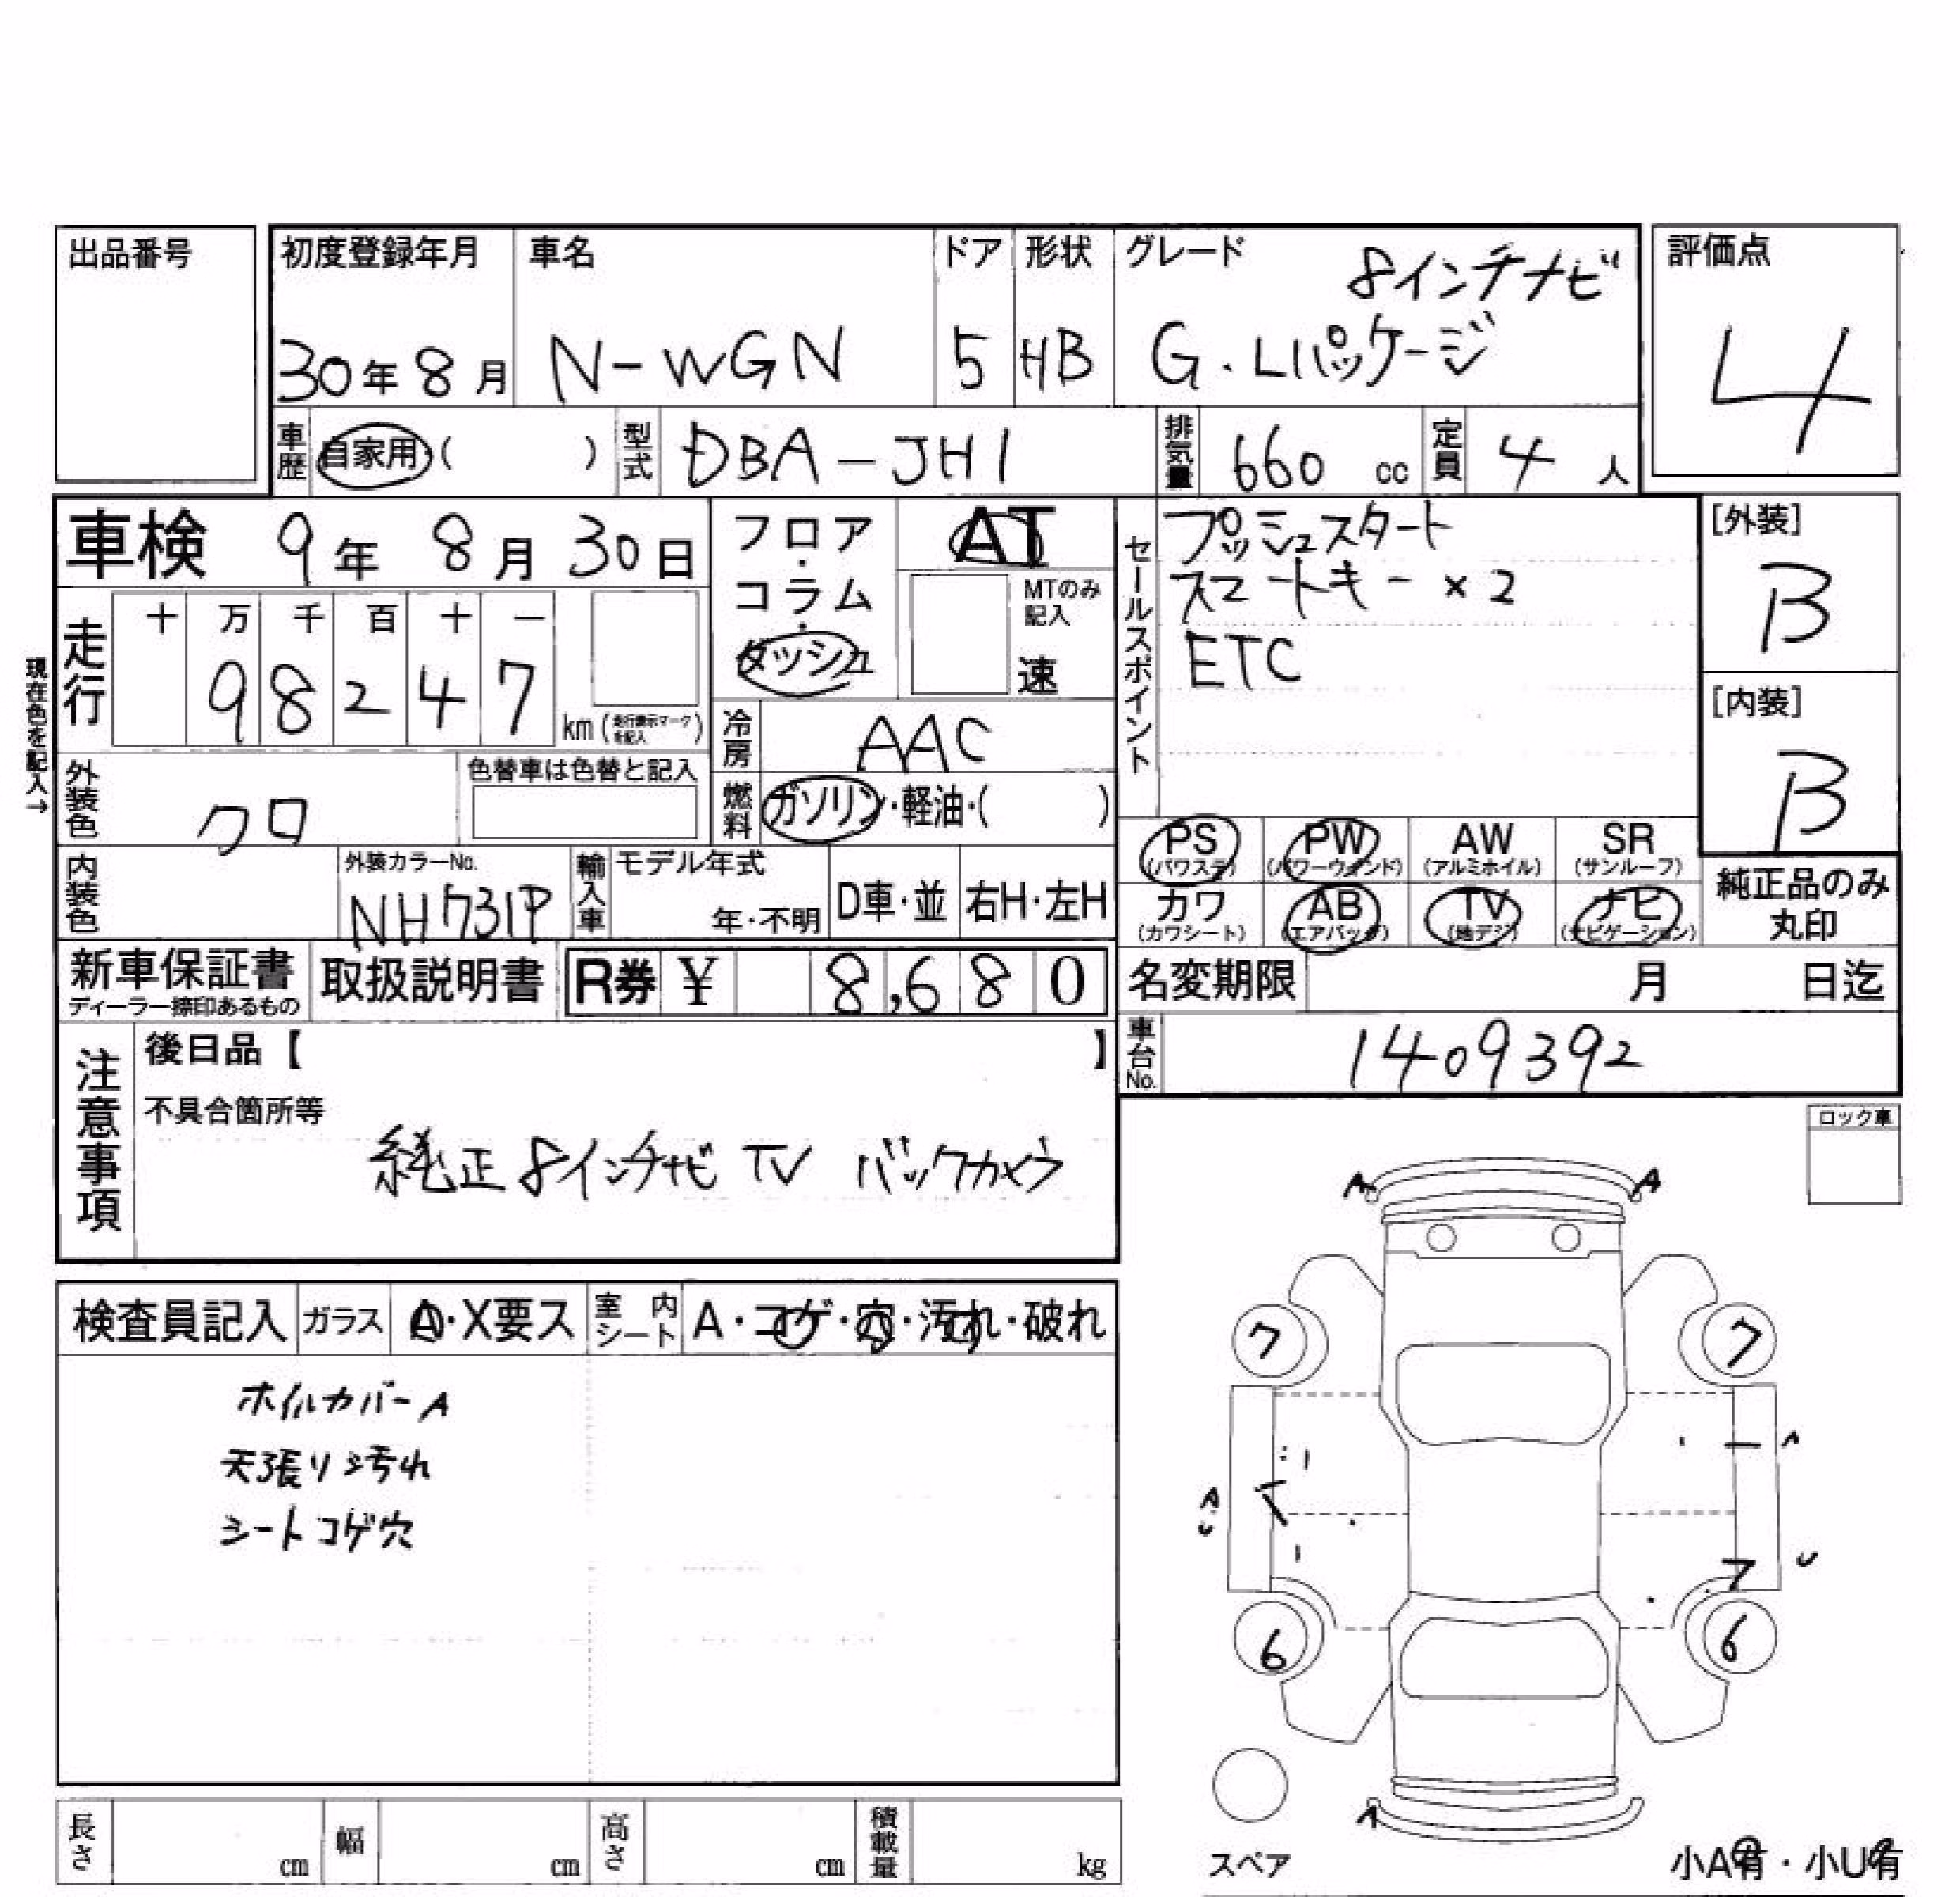 出品番号
初度登録年月 車名 ドア 形状 グレード 8インチナビ 評価点
30年8月 N-WGN 5 HB G.Lパッケージ 4
車歴 自家用・( ) 型式 DBA-JH1 排気量 660 cc 定員 4 人
車検 9年 8月 30日 フロア・コラム・ダッシュ AT
MTのみ記入 速
セールスポイント プッシュスタート
スマートキー×2
ETC
[外装] B
[内装] B
現在色を記入→
走行 十 万 千 百 十 一
98247 km(走行表示マークを記入)
冷房 AAC
外装色 クロ 色替車は色替と記入
燃料 ガソリン・軽油・( )
PS(パワステ) PW(パワーウィンド) AW(アルミホイル) SR(サンルーフ)
カワ(カワシート) AB(エアバッグ) TV(地デジ) ナビ(ナビゲーション)
純正品のみ丸印
内装色 外装カラーNo. NH731P 輸入車 モデル年式 年・不明 D車・並 右H・左H
新車保証書 ディーラー捺印あるもの 取扱説明書 R券 ¥ 8,680
名変期限 月 日迄
車台No. 1409392
注意事項 後日品【 】
不具合箇所等
純正 8インチナビ TV バックカメラ
ロック車
検査員記入 ガラス A・X要ス 室内シート A・コゲ・穴・汚れ・破れ
ホイルカバーA
天張りシ汚れ
シートコゲ穴
A A
7 7
A
U
U
6 6
A
スペア
小A有・小U有
長さ cm 幅 cm 高さ cm 積載量 kg